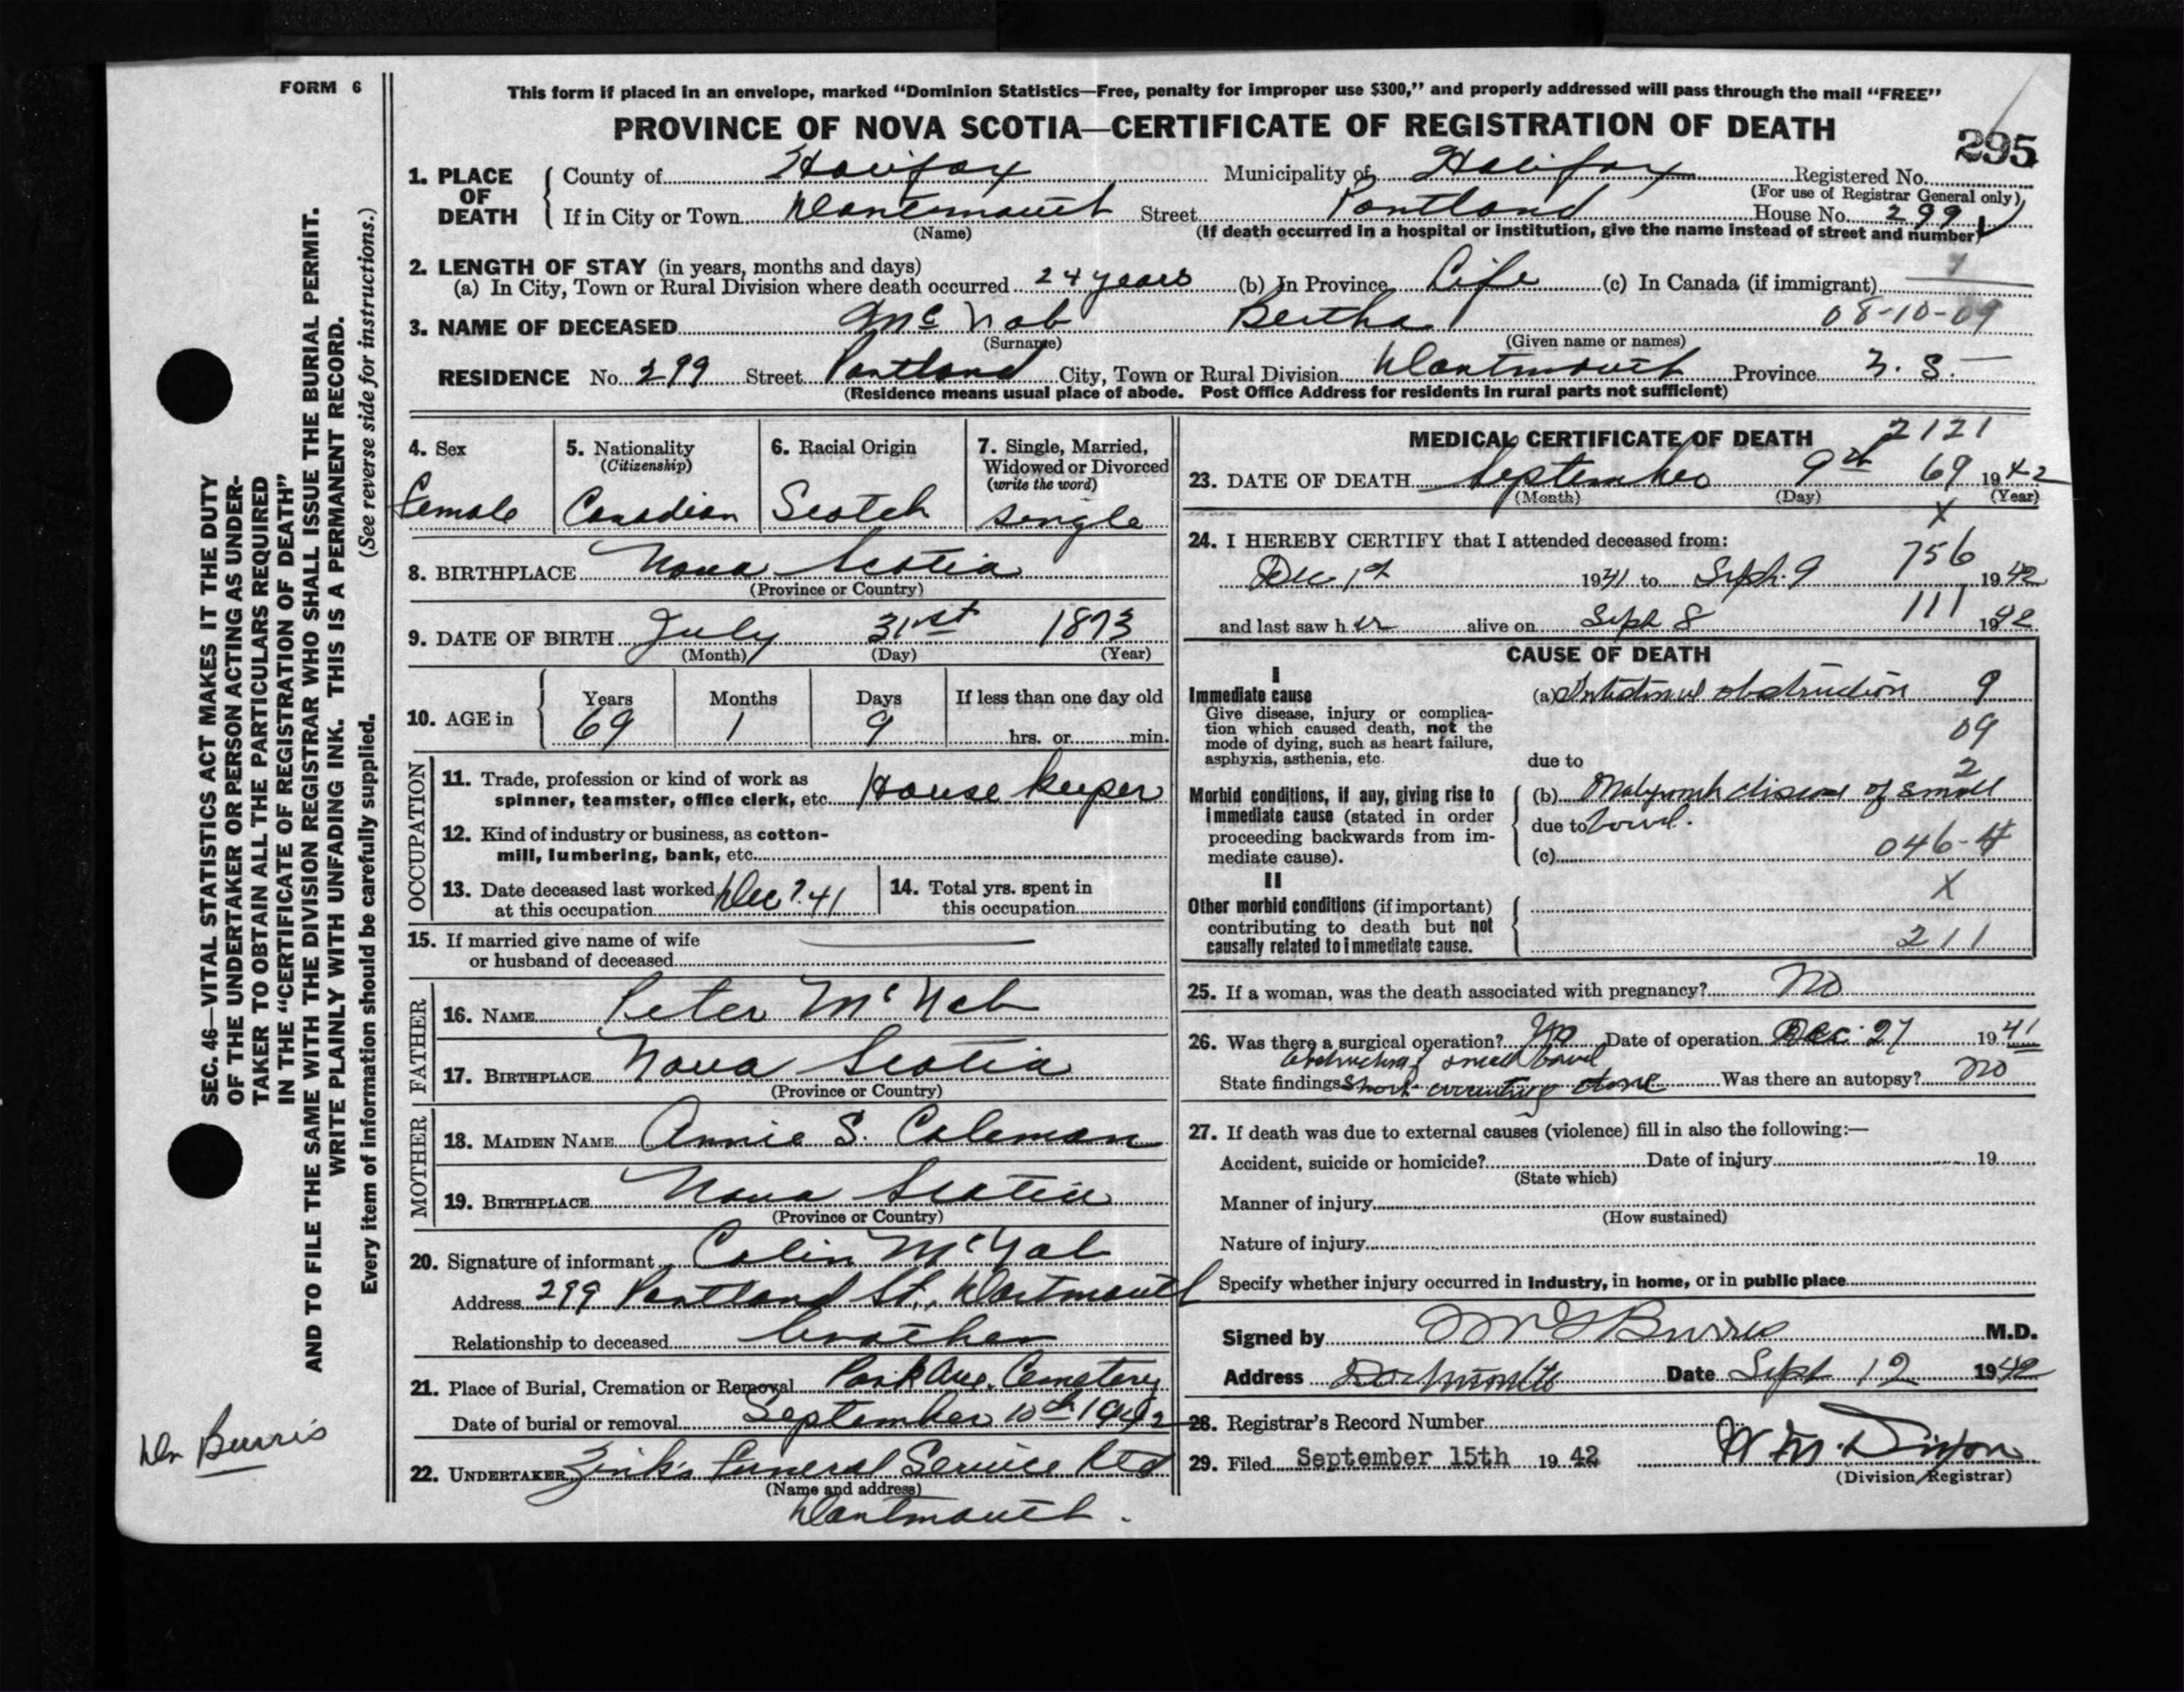 FORM 6
This form if placed in an envelope, marked "Dominion Statistics—Free, penalty for improper use $300," and properly addressed will pass through the mail "FREE"
PROVINCE OF NOVA SCOTIA—CERTIFICATE OF REGISTRATION OF DEATH
295
1. PLACE OF DEATH
County of Halifax Municipality of Halifax Registered No.
(For use of Registrar General only)
If in City or Town Dartmouth Street Portland House No. 299
(Name) (If death occurred in a hospital or institution, give the name instead of street and number)
2. LENGTH OF STAY (in years, months and days)
(a) In City, Town or Rural Division where death occurred 24 years (b) In Province Life (c) In Canada (if immigrant)
3. NAME OF DECEASED McNab Bertha 08-10-09
(Surname) (Given name or names)
RESIDENCE No. 299 Street Portland City, Town or Rural Division Dartmouth Province N. S.
(Residence means usual place of abode. Post Office Address for residents in rural parts not sufficient)
4. Sex
Female
5. Nationality
(Citizenship)
Canadian
6. Racial Origin
Scotch
7. Single, Married,
Widowed or Divorced
(write the word)
Single
8. BIRTHPLACE Nova Scotia
(Province or Country)
9. DATE OF BIRTH July 31st 1873
(Month) (Day) (Year)
10. AGE in
Years Months Days If less than one day old
69 1 9 hrs. or min.
OCCUPATION
11. Trade, profession or kind of work as
spinner, teamster, office clerk, etc. House keeper
12. Kind of industry or business, as cotton-
mill, lumbering, bank, etc.
13. Date deceased last worked
at this occupation Dec 41
14. Total yrs. spent in
this occupation
15. If married give name of wife
or husband of deceased
FATHER
16. NAME Peter McNab
17. BIRTHPLACE Nova Scotia
(Province or Country)
MOTHER
18. MAIDEN NAME Annie S. Coleman
19. BIRTHPLACE Nova Scotia
(Province or Country)
20. Signature of informant Colin McNab
Address 299 Portland St., Dartmouth
Relationship to deceased brother
21. Place of Burial, Cremation or Removal Park Ave. Cemetery
Date of burial or removal September 10th 1942
22. UNDERTAKER Zink's Funeral Service Ltd
(Name and address)
Dartmouth.
MEDICAL CERTIFICATE OF DEATH 2121
23. DATE OF DEATH September 9th 69 1942
(Month) (Day) (Year)
X
24. I HEREBY CERTIFY that I attended deceased from:
Dec 1st 1941 to Sept. 9 756 1942
and last saw her alive on Sept 8 111 1942
CAUSE OF DEATH
I
Immediate cause
Give disease, injury or complica-
tion which caused death, not the
mode of dying, such as heart failure,
asphyxia, asthenia, etc.
(a) Intestinal obstruction 9
09
due to
2
Morbid conditions, if any, giving rise to
immediate cause (stated in order
proceeding backwards from im-
mediate cause).
(b) Malignant disease of small
due to bowel.
(c) 046-4
II
X
Other morbid conditions (if important)
contributing to death but not
causally related to immediate cause.
211
25. If a woman, was the death associated with pregnancy? No
26. Was there a surgical operation? Yes Date of operation Dec. 27 1941
small bowel
State findings Was there an autopsy? No
27. If death was due to external causes (violence) fill in also the following:—
Accident, suicide or homicide? Date of injury 19
(State which)
Manner of injury
(How sustained)
Nature of injury
Specify whether injury occurred in industry, in home, or in public place
Signed by Burris M.D.
Address Dartmouth Date Sept 12 1942
28. Registrar's Record Number
29. Filed September 15th 1942
(Division Registrar)
SEC. 46—VITAL STATISTICS ACT MAKES IT THE DUTY
OF THE UNDERTAKER OR PERSON ACTING AS UNDER-
TAKER TO OBTAIN ALL THE PARTICULARS REQUIRED
IN THE "CERTIFICATE OF REGISTRATION OF DEATH"
AND TO FILE THE SAME WITH THE DIVISION REGISTRAR WHO SHALL ISSUE THE BURIAL PERMIT.
WRITE PLAINLY WITH UNFADING INK. THIS IS A PERMANENT RECORD.
Every item of information should be carefully supplied. (See reverse side for instructions.)
Dr Burris